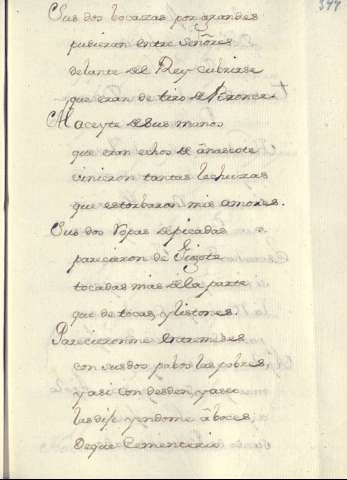 Sus dos bocazas por grandes
pudieran entre Señores
delante del Rey cubrirse
que eran de tiro de Bronce.
Al aceyte de sus manos
que eran echos de anascote
vinieron tantas lechuzas
que estorbaron mis amores.
Sus dos Ropas de picadas
parecieron de Gigote
tocadas mas de la parte
que de tocas y listones.
Parecieronme entremedes
con sus dos palos las pobres,
y asi con desden y asco
las dije yendome â boces,
De que Cementerio